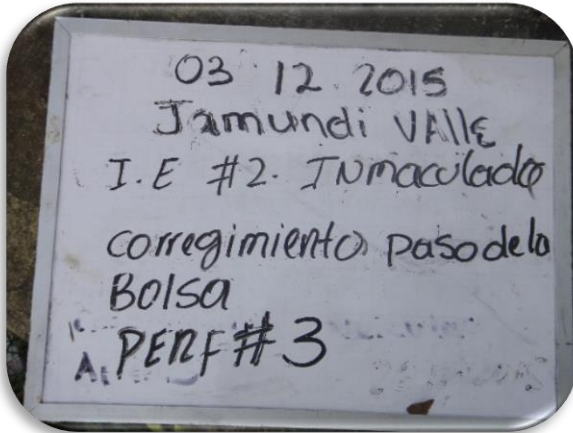 03 12 2015
Jamundi VAlle
I.E #2. INmaculado
corregimiento pasodela
Bolsa
PERF #3